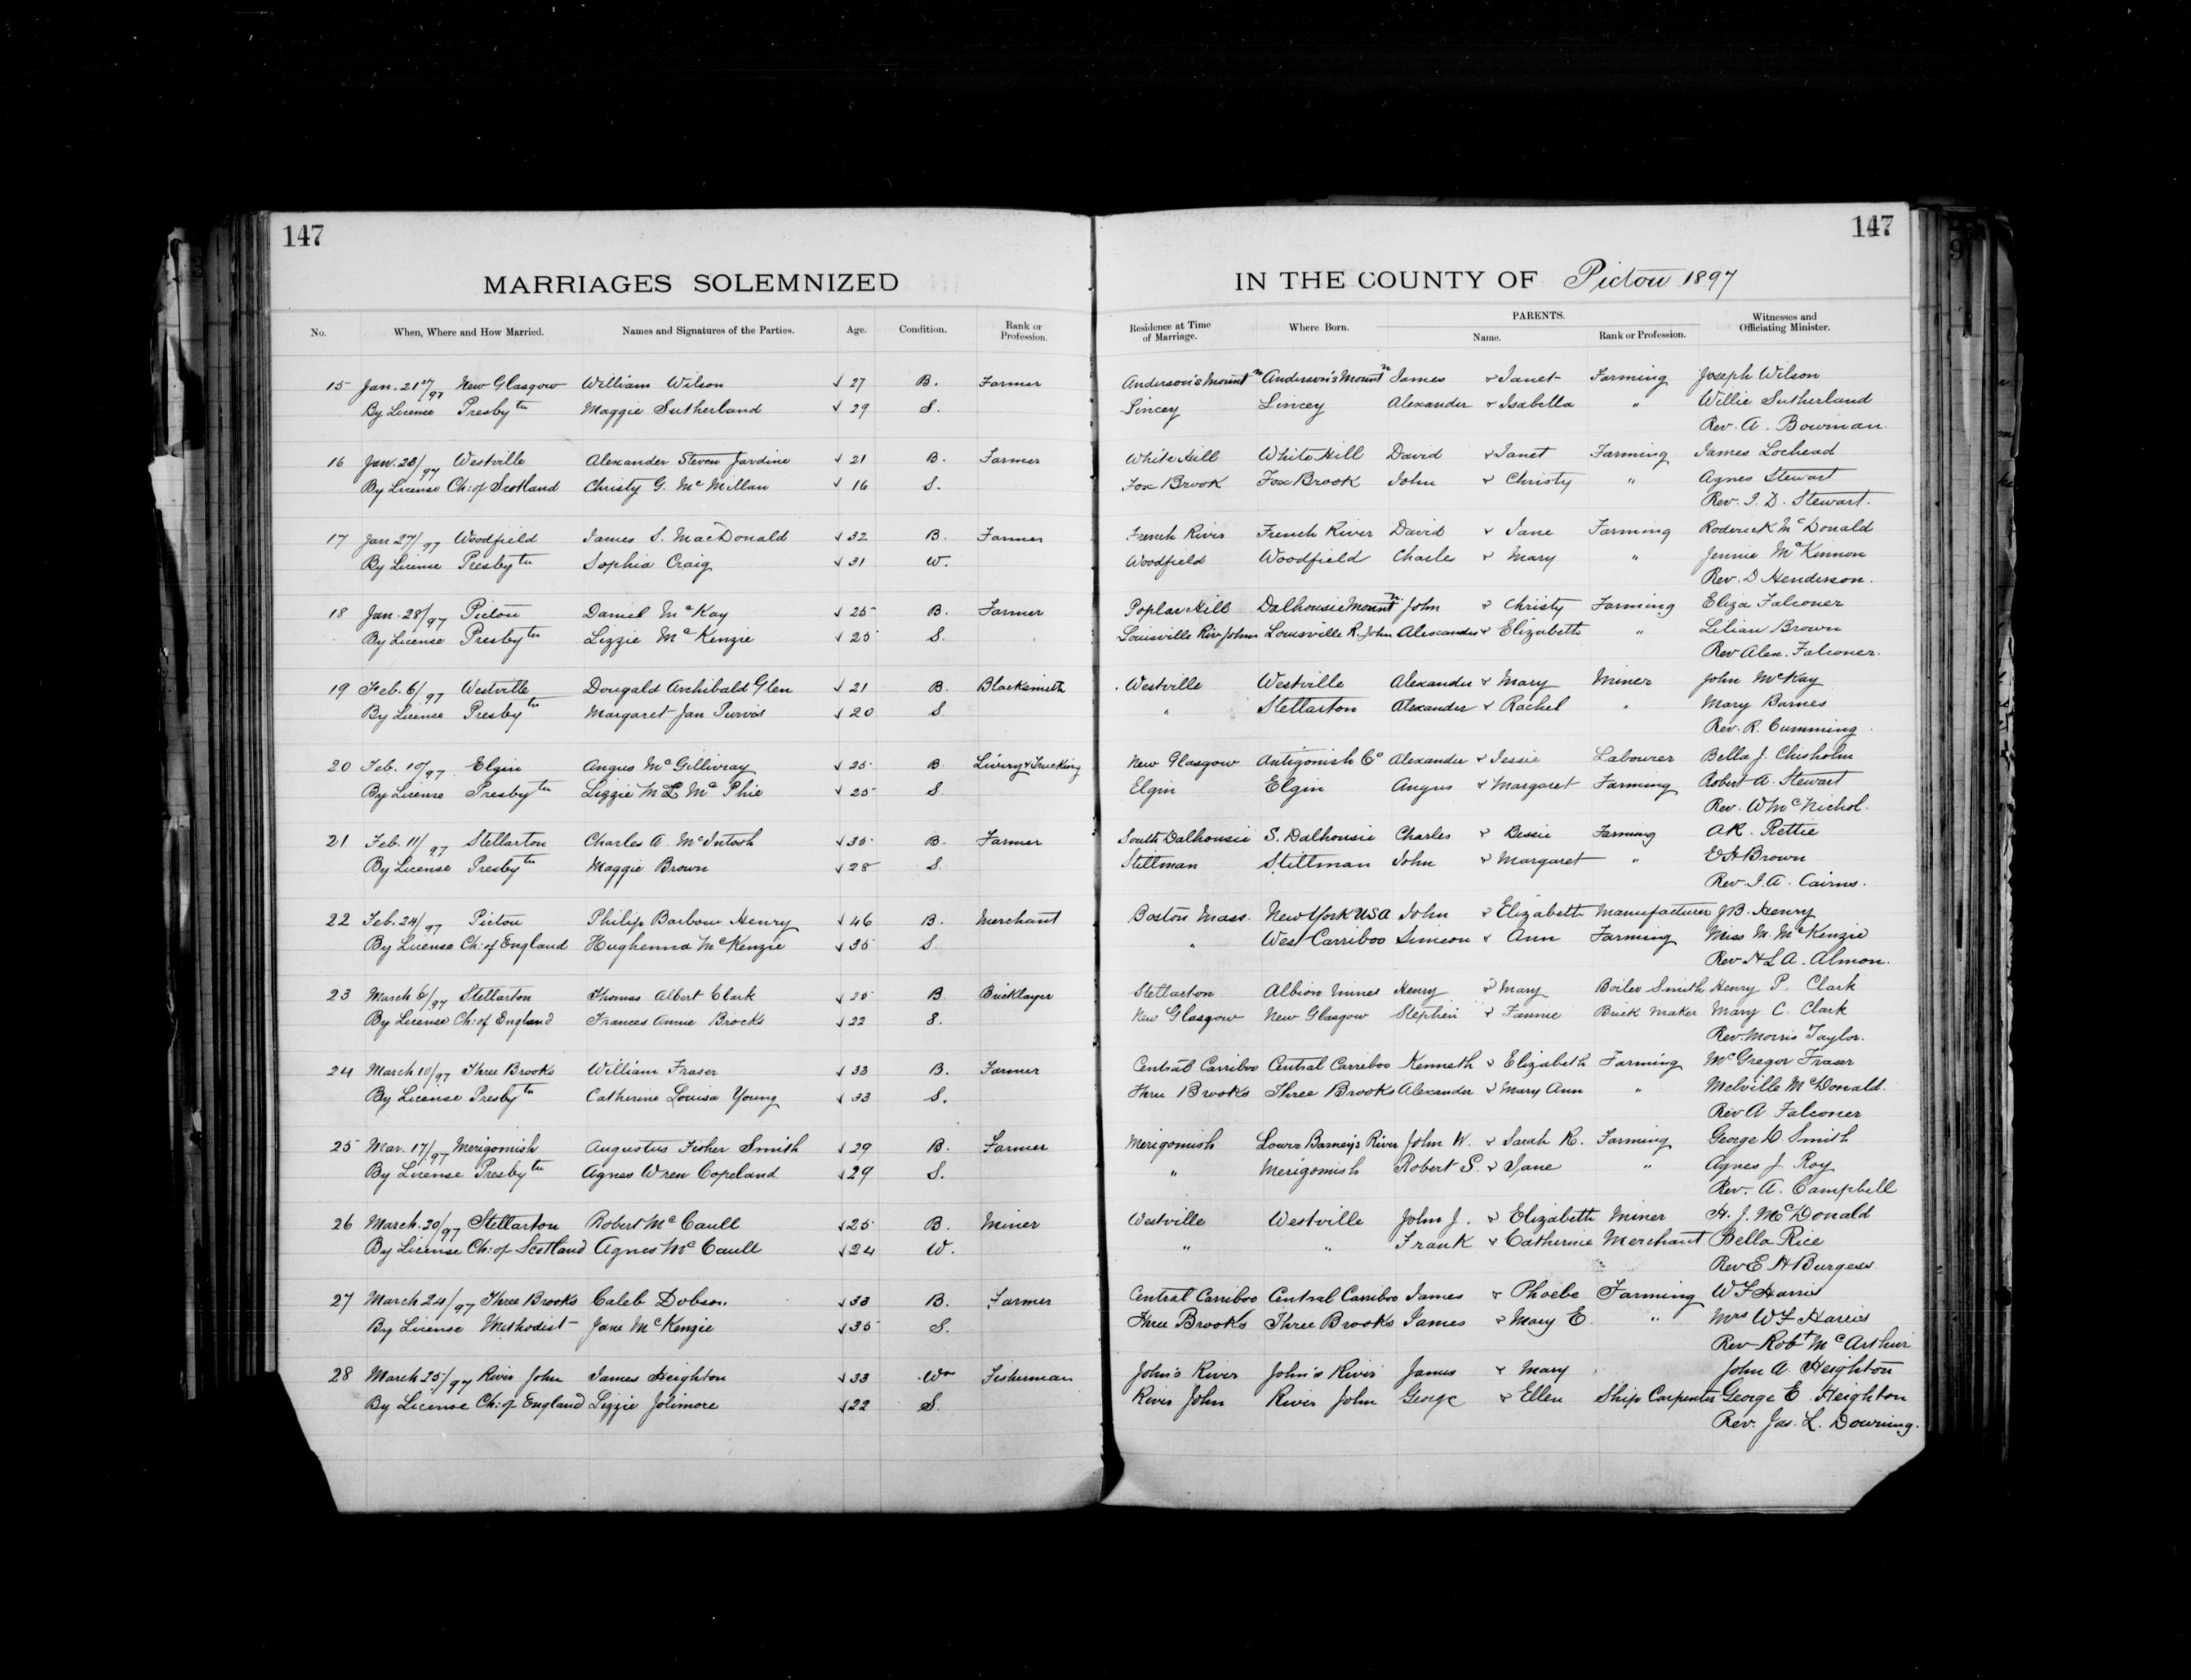 147
147
MARRIAGES SOLEMNIZED IN THE COUNTY OF Pictou 1897
No. When, Where and How Married. Names and Signatures of the Parties. Age. Condition. Rank or Profession. Residence at Time of Marriage. Where Born. PARENTS. Name. Rank or Profession. Witnesses and Officiating Minister.
15 Jan. 21st/97 New Glasgow William Wilson √ 27 B. Farmer Anderson's Mountn Anderson's Mountn James & Janet Farming Joseph Wilson
By License Presbytn Maggie Sutherland √ 29 S. Lincey Lincey Alexander & Isabella " Willie Sutherland
Rev. A. Bowman.
16 Jan. 23/97 Westville Alexander Steven Jardine √ 21 B. Farmer White Hill White Hill David & Janet Farming James Lochead
By License Ch: of Scotland Christy G. Mc Millan √ 16 S. Fox Brook Fox Brook John & Christy " Agnes Stewart
Rev. I. D. Stewart.
17 Jan 27/97 Woodfield James S. MacDonald √ 32 B. Farmer French River French River David & Jane Farming Roderick McDonald
By License Presbytn Sophia Craig √ 31 W. Woodfield Woodfield Charles & Mary " Jennie McKinnon
Rev. D Henderson.
18 Jan. 28/97 Pictou Daniel McKay √ 25 B. Farmer Poplar Hill Dalhousie Mountn John & Christy Farming Eliza Falconer
By License Presbytn Lizzie McKenzie √ 25 S. Louisville Riv John Louisville R. John Alexander & Elizabeth " Lilian Brown
Rev Alex. Falconer.
19 Feb. 6/97 Westville Dougald Archibald Glen √ 21 B. Blacksmith Westville Westville Alexander & Mary Miner John McKay
By License Presbytn Margaret Jan Purvis √ 20 S " Stellarton Alexander & Rachel " Mary Barnes
Rev. R. Cumming.
20 Feb. 10/97 Elgin Angus McGillivray √ 25 B. Livery & Trucking New Glasgow Antigonish Co Alexander & Jessie Labourer Bella J. Chisholm
By License Presbytn Lizzie M L Mc Phie √ 25 S. Elgin Elgin Angus & Margaret Farming Robert A. Stewart
Rev. W McNichol.
21 Feb. 11/97 Stellarton Charles A. McIntosh √ 35 B. Farmer South Dalhousie S. Dalhousie Charles & Bessie Farming A R. Rettie
By License Presbytn Maggie Brown √ 28 S. Stillman Stillman John & Margaret " E H Brown
Rev I. A. Cairns.
22 Feb. 24/97 Pictou Philip Barbour Henry √ 46 B. Merchant Boston Mass. New York USA John & Elizabeth Manufacturer J B. Henry
By License Ch: of England Hughenna McKenzie √ 35 S. " West Carriboo Simeon & Ann Farming Miss M. McKenzie
Rev H L A. Almon.
23 March 6/97 Stellarton Thomas Albert Clark √ 25 B. Bricklayer Stellarton Albion Mines Henry & Mary Boiler Smith Henry P. Clark
By License Ch: of England Frances Annie Brocks √ 22 S. New Glasgow New Glasgow Stephen & Fannie Brick Maker Mary C. Clark
Rev. Morris Taylor.
24 March 10/97 Three Brooks William Fraser √ 33 B. Farmer Central Carriboo Central Carriboo Kenneth & Elizabeth Farming McGregor Fraser
By License Presbytn Catherine Louisa Young √ 33 S. Three Brooks Three Brooks Alexander & Mary Ann " Melville McDonald.
Rev A. Falconer
25 Mar. 17/97 Merigomish Augustus Fisher Smith √ 29 B. Farmer Merigomish Lower Barney's River John W. & Sarah R. Farming George D. Smith
By License Presbytn Agnes Wren Copeland √ 29 S. " Merigomish Robert S. & Jane " Agnes J Roy
Rev. A. Campbell
26 March. 20/97 Stellarton Robert McCaull √ 25 B. Miner Westville Westville John J. & Elizabeth Miner H. J. McDonald
By License Ch: of Scotland Agnes McCaull √ 24 W. " " Frank & Catherine Merchant Bella Rice
Rev E H Burgess.
27 March 24/97 Three Brooks Caleb Dobson √ 33 B. Farmer Central Carriboo Central Carriboo James & Phoebe Farming W F Harris
By License Methodist Jane McKenzie √ 35 S. Three Brooks Three Brooks James & Mary E. " Mrs W F Harris
Rev Robt McArthur
28 March 25/97 River John James Heighton √ 33 Wr Fisherman John's River John's River James & Mary John A. Heighton
By License Ch: of England Lizzie Jolimore √ 22 S. River John River John George & Ellen Ship Carpenter George E. Heighton
Rev. Jas. L. Downing.